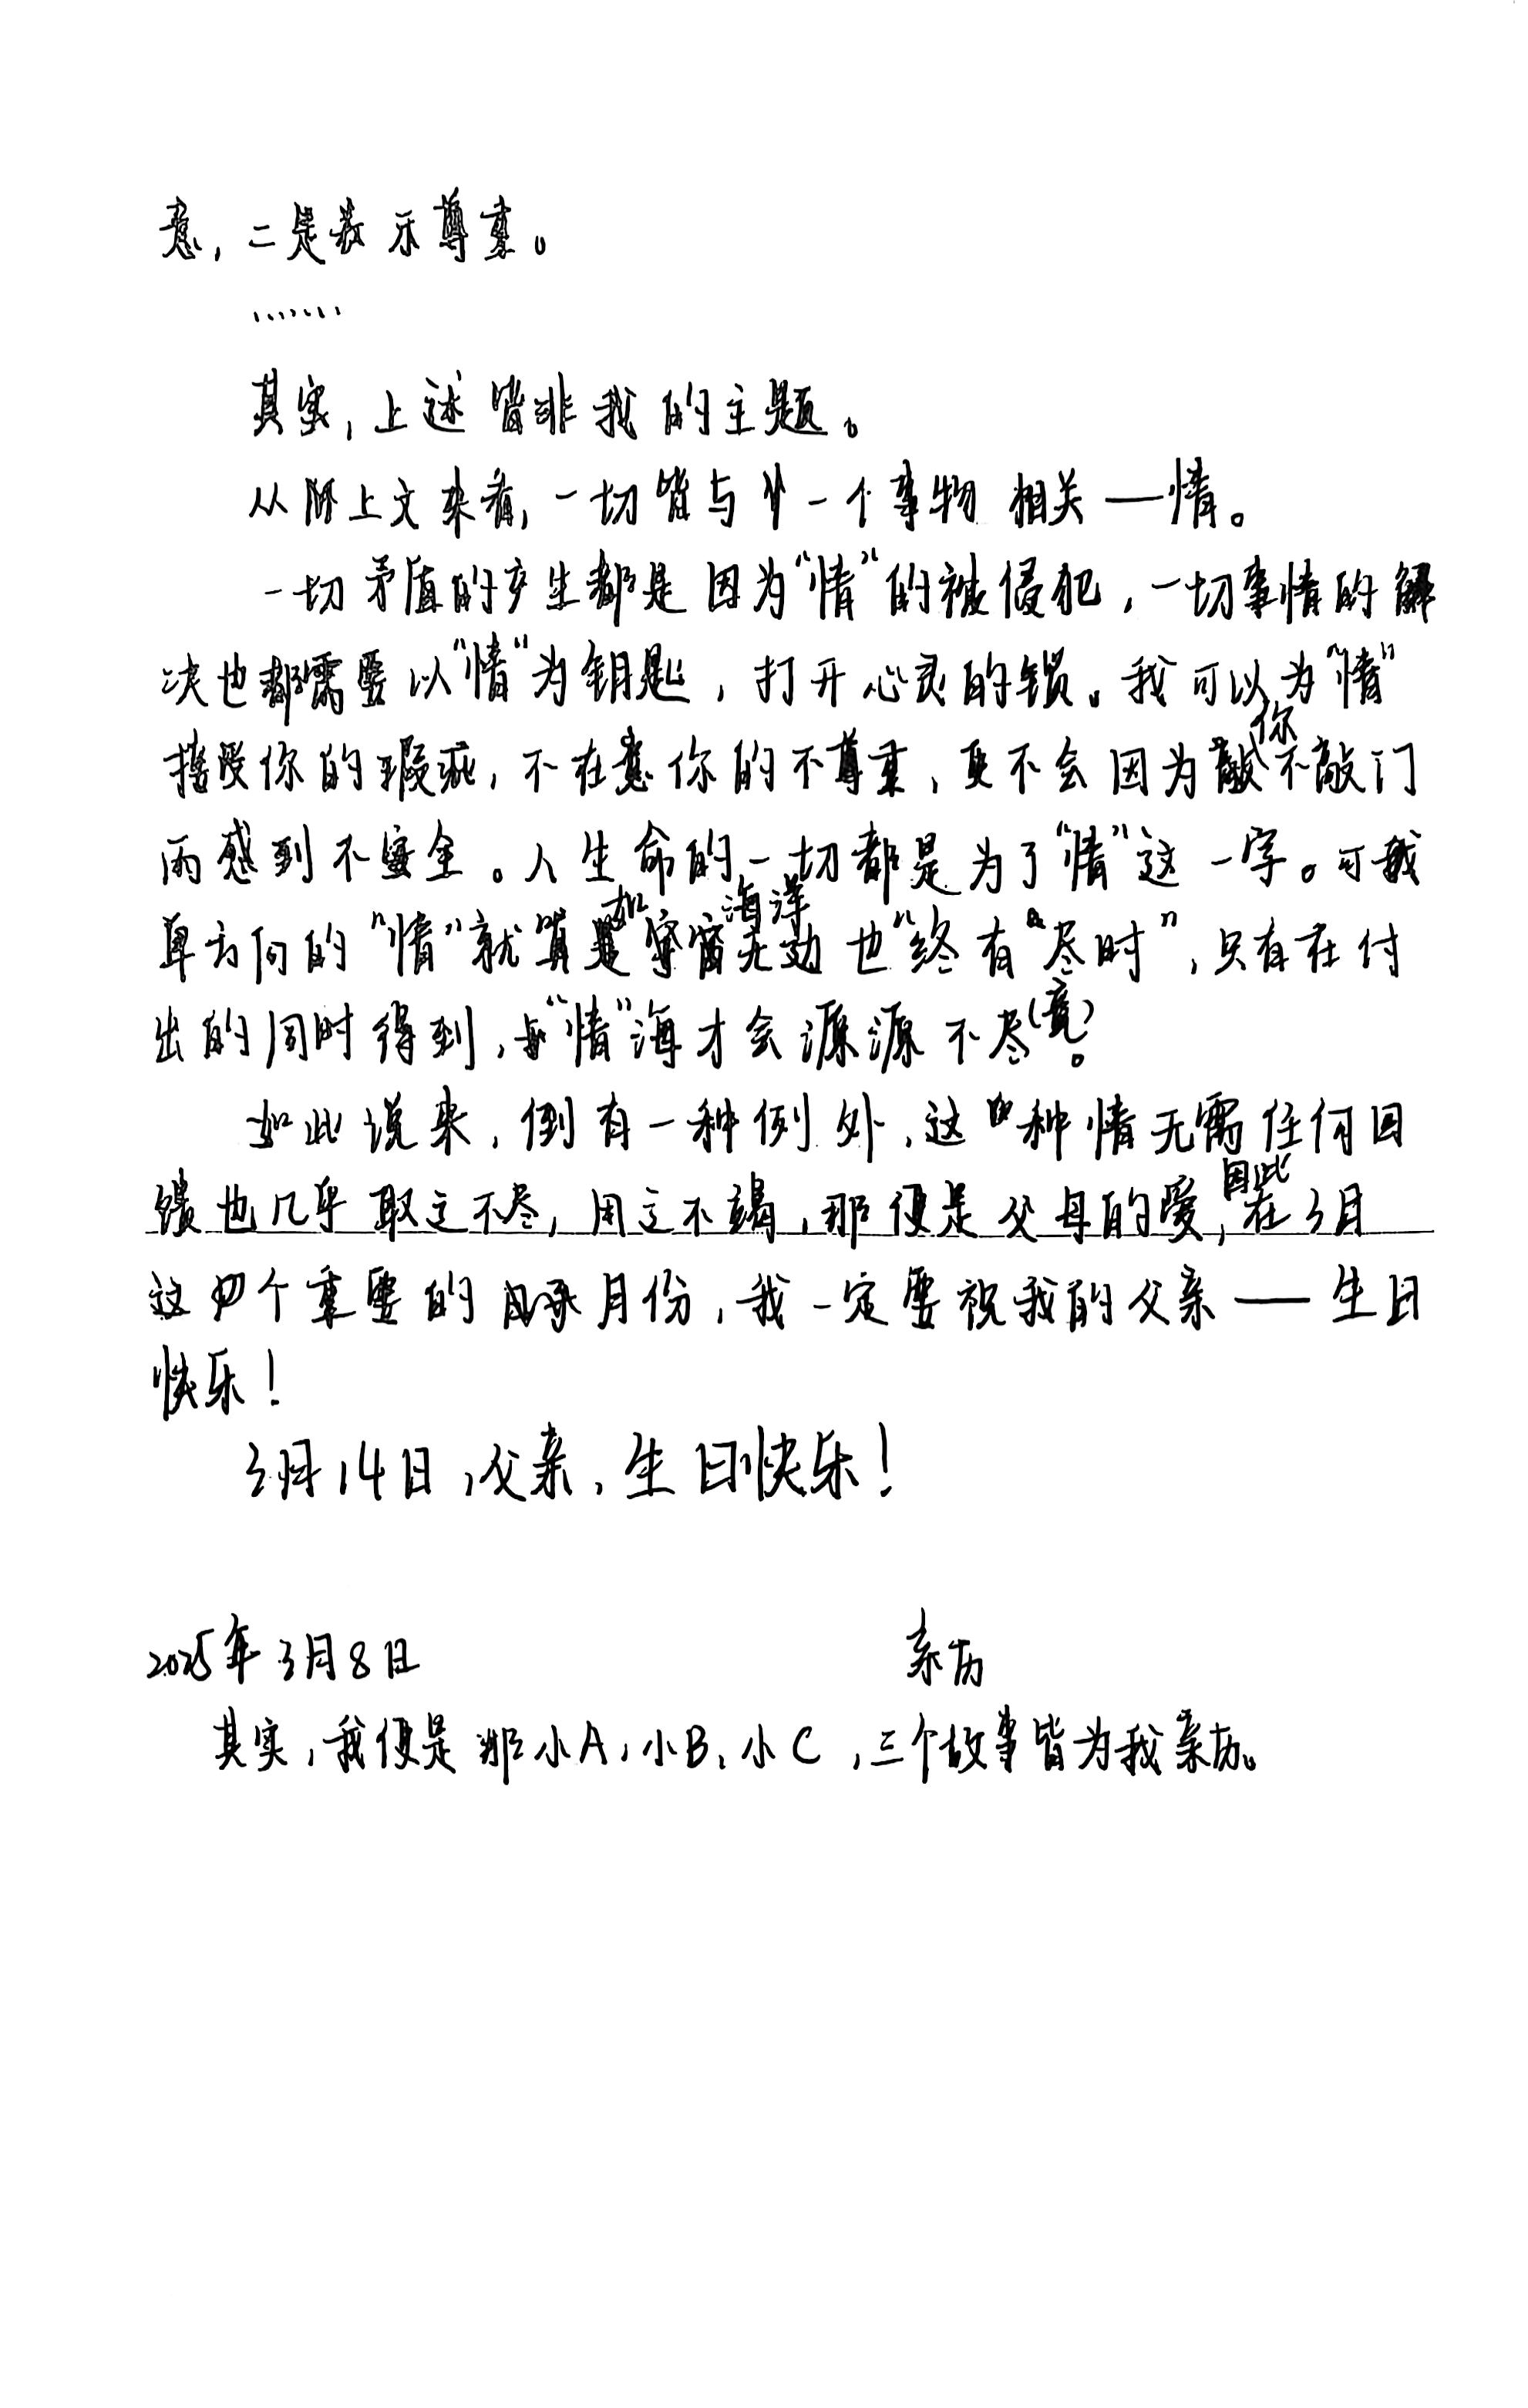 意，二是表示尊重。
……
其实，上述皆非我的主题。
从上文来看，一切皆与一个事物相关——情。
一切矛盾的产生都是因为“情”的被侵犯，一切事情的解
决也都需要以“情”为钥匙，打开心灵的锁。我可以为“情”
接受你的瑕疵，不在意你的不尊重，更不会因为你不敲门
而感到不安全。人生命的一切都是为了“情”这一字。可我
单方向的“情”就算是如海洋无边也“终有尽时”，只有在付
出的同时得到，“情”海才会源源不尽(竟)。
如此说来，倒有一种例外，这种情无需任何回
馈也几乎取之不尽，用之不竭，那便是父母的爱，因此在3月
这个重要的月份，我一定要祝我的父亲——生日
快乐！
3月14日，父亲，生日快乐！
2025年3月8日 亲历
其实，我便是那小A，小B，小C，三个故事皆为我亲历。